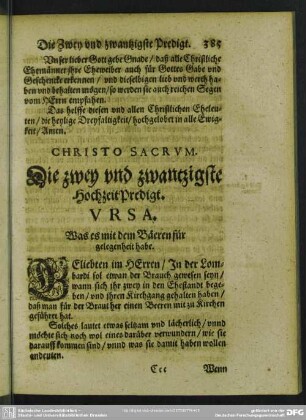 Die Zwey vnd zwantzigste Predigt. 385
Vnser lieber Gott gebe Gnade / daß alle Christliche
Ehemänner ihre Eheweiber auch für Gottes Gabe vnd
Geschencke erkennen / vnd dieselbigen lieb vnd werth ha-
ben vnd behalten mögen / so werden sie auch reichen Segen
vom HErrn empfahen.
Das helffe diesen vnd allen Christlichen Eheleu-
ten / die heylige Dreyfaltigkeit / hochgelobet in alle Ewig-
keit / Amen.
CHRISTO SACRVM.
Die zwey vnd zwantzigste
HochzeitPredigt.
VRSA.
Was es mit dem Bäeren für
gelegenheit habe.
GEliebten im HErren / In der Lom-
bardi sol etwan der Brauch gewesen seyn /
wann sich ihr zwey in den Ehestandt bege-
ben / vnd ihren Kirchgang gehalten haben /
daß man für der Braut her einen Beeren mit zu Kirchen
geführet hat.
Solches lautet etwas seltzam vnd lächerlich / vnnd
möchte sich noch wol eines darüber verwundern / wie sie
darauff kommen sind / vnnd was sie damit haben wollen
andeuten.
Ccc Wenn